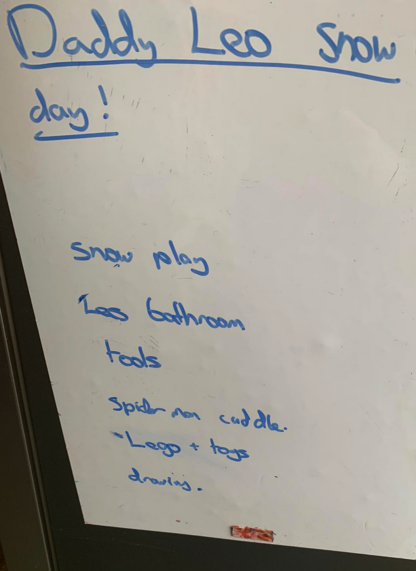 Daddy Leo Snow
day!
snow play
Leos bathroom
tools
Spiderman cuddle.
- Lego + toys
drawing.